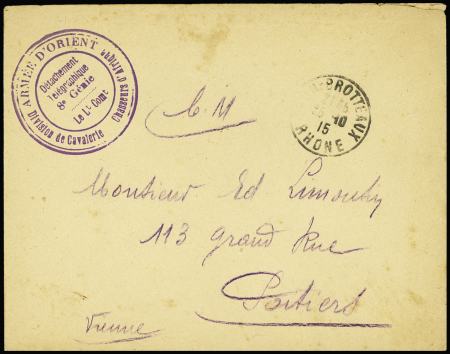 ARMÉE D'ORIENT
Chasseurs d'Afrique
Division de Cavalerie
Détachement
Télégraphique
8e Génie
Le Lt Comt
BROTTEAUX
10
15
RHONE
Monsieur Ed
113 Grand Rue
Poitiers
Vienne